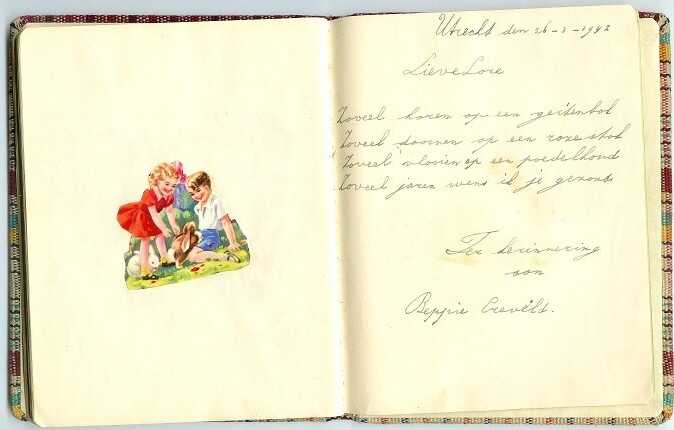 Utrecht den 26-3-1942
Lieve Lore
Zoveel haren op een geitenbok
Zoveel doornen op een rozestok
Zoveel vlooien op een poedelhond
Zoveel jaren wens ik je gezond
Ter herinnering
aan
Beppie Creveld.